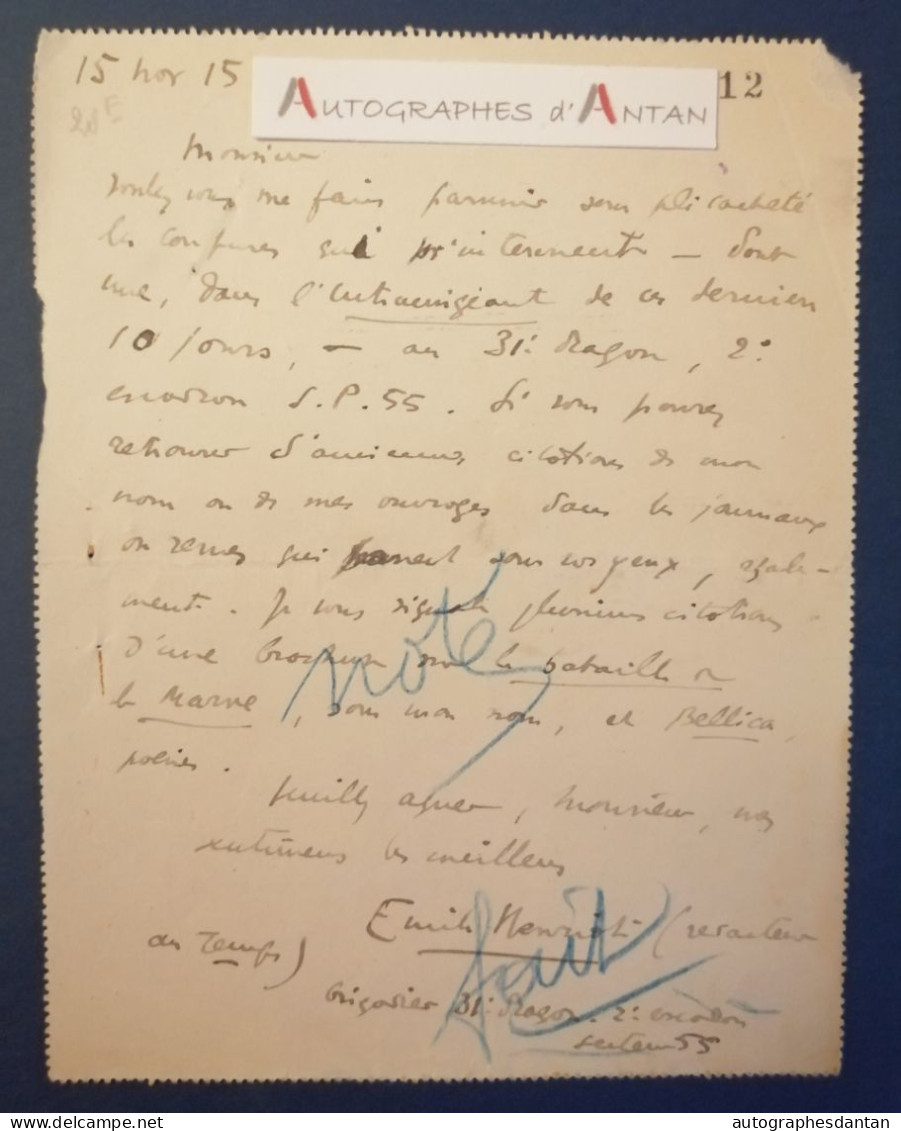 15 nov 15
AUTOGRAPHES d'ANTAN
12
20 E
Monsieur
voulez vous me faire parvenir sous pli cacheté
les coupures qui m'intéressent — dont
une, dans l'Intransigeant de ces derniers
10 jours, — au 31e dragon, 2e
escadron S.P. 55. Si vous pouvez
retrouver d'anciennes citations de mon
nom ou de mes ouvrages dans les journaux
ou revues qui passent sous vos yeux, égale-
ment. Je vous signale plusieurs citations
d'une brochure sur la bataille de
la Marne, sous mon nom, et Bellica,
poésies.
noté
Veuillez agréer, Monsieur, mes
sentimens les meilleurs
Emile Henriot (rédacteur
au Temps)
fait
brigadier 31e dragon. 2e escadron
secteur 55
autographesdantan